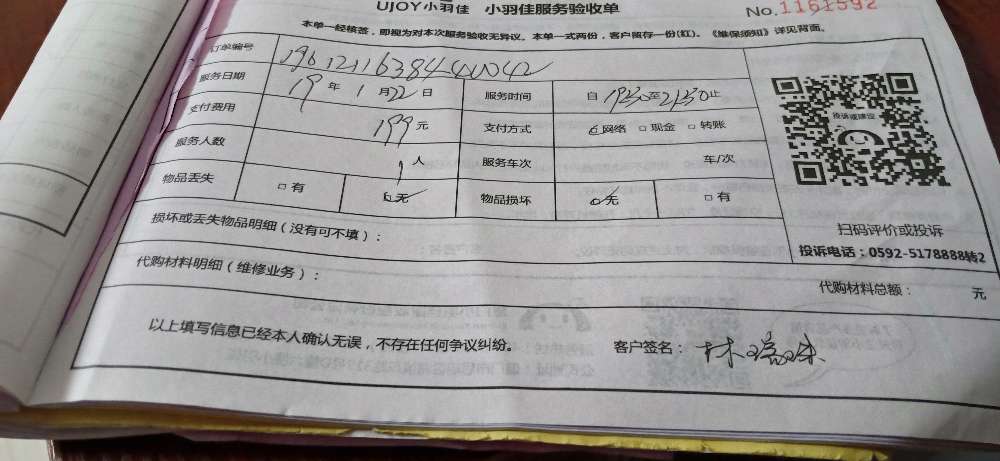 UJOY小羽佳 小羽佳服务验收单 No.1161592
本单一经核签，即视为对本次服务验收无异议。本单一式两份，客户留存一份(红)。《维保须知》详见背面。
订单编号
服务日期 19 年 1 月 22 日 服务时间 自 1930 至 2130 止
支付费用 199 元 支付方式 网络 □ 现金 □ 转账
服务人数 1 人 服务车次 车/次
物品丢失 □ 有 无 物品损坏 无 □ 有
投诉或建议
扫码评价或投诉
投诉电话：0592-5178888转2
损坏或丢失物品明细（没有可不填）：
代购材料明细（维修业务）： 代购材料总额： 元
以上填写信息已经本人确认无误，不存在任何争议纠纷。 客户签名：林瑞珠